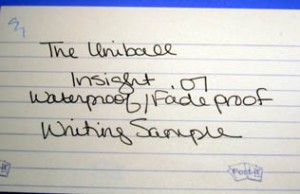 The Uniball
Insight .07
Waterproof/Fadeproof
Writing Sample